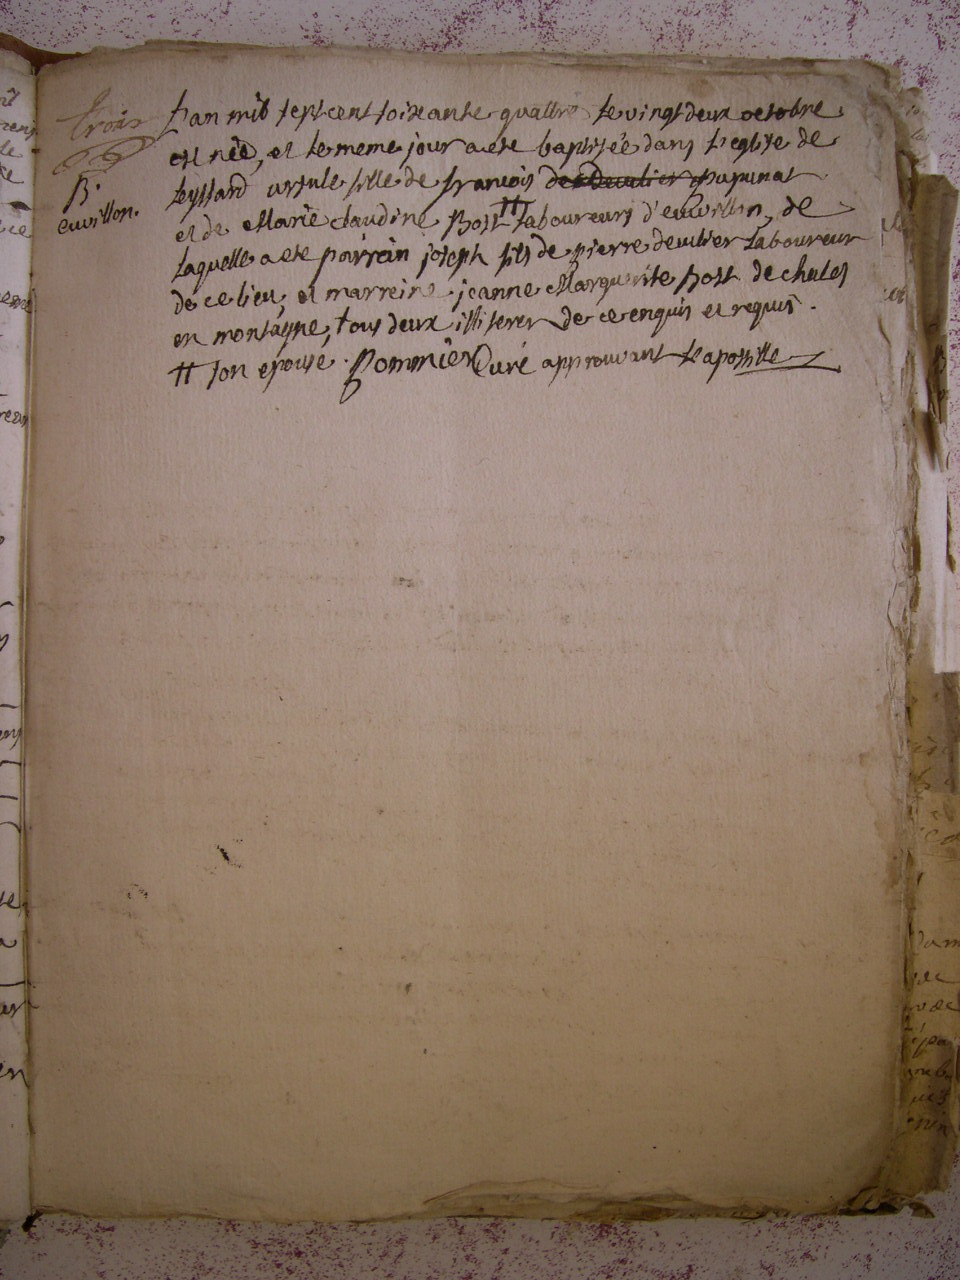 trois
B.
euvillon.
L'an mil sept cent soixante quattre le vingt deux octobre
est née, et le meme jour a eté baptisée dans l'eglise de
Leyssard ursule fille de francois de Deculier papunat
et de Marie claudine Bost # laboureurs d'euvillon, de
laquelle a eté parrain joseph fils de pierre deculier laboureur
de ce lieu, et marreine jeanne Marguerite Bost de chales
en montagne, tous deux illiterer de ce enquis et requis.
# son epouse. Pommier Curé approuvant l'apostille